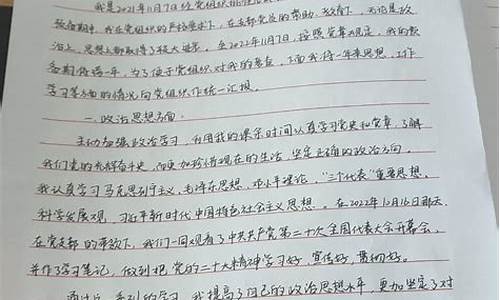 我是2021年11月7日经党组织批准
预备期中,我在党组织的严格要求下,在支部党员的帮助、教育下,无论是政
治上、思想上都取得了较大进步。至2022年11月7日,按照党章规定,我的预
备期将满一年。为了便于党组织对我的考察,下面我将一年来思想、工作
学习等方面的情况向党组织作统一汇报。
一、政治思想方面。
主动加强政治学习,利用我的课余时间认真学习党史和党章,了解
我们党的光辉奋斗史,从而更加珍惜现在的生活,坚定正确的政治方向。
我认真学习马克思列宁主义、毛泽东思想、邓小平理论、“三个代表”重要思想、
科学发展观、习近平新时代中国特色社会主义思想。在2022年10月16日那天,
在党支部的带领下,我们一同观看了中共共产党第二十次全国代表大会开幕会,
并作了学习笔记,做到把党的二十大精神学习好、宣传好、贯彻好。
通过这一系列的学习,我提高了自己的政治思想水平,更加坚定了对